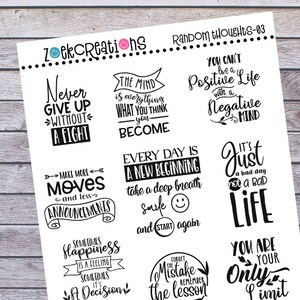 ZoekCreations
Random Thoughts-03
Never
GIVE UP
WITHOUT
A FIGHT
THE MIND
is everything
WHAT YOU THINK
you
BECOME
YOU CAN'T
live a
Positive Life
with a
Negative
MIND
MAKE MORE
MOVES
and less
ANNOUNCEMENTS
EVERY DAY IS
A NEW BEGINNING
take a deep breath
Smile
and START again
IT'S
Just
a bad day
NOT A BAD
LIFE
SOMETIMES
Happiness
IS A FEELING
SOMETIMES
IT'S
A Decision
FORGET
THE
Mistake
REMEMBER
the lesson
YOU ARE
YOUR
Only
Limit